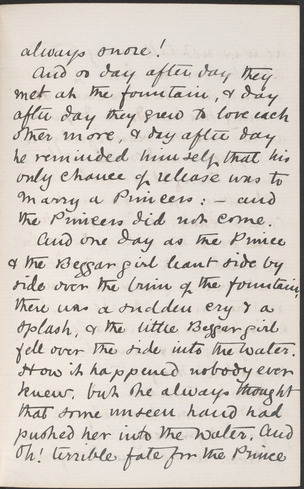 always snore!
And so day after day they
met at the fountain, & day
after day they grew to love each
other more, & day after day
he reminded himself that his
only chance of release was to
marry a Princess: – and
the Princess did not come.
And one day as the Prince
& the Beggar girl leant side by
side over the brim of the fountain,
there was a sudden cry & a
splash, & the little Beggar girl
fell over the side into the water.
How it happened nobody ever
knew, but she always thought
that some unseen hand had
pushed her into the water. And
Oh! terrible fate for the Prince